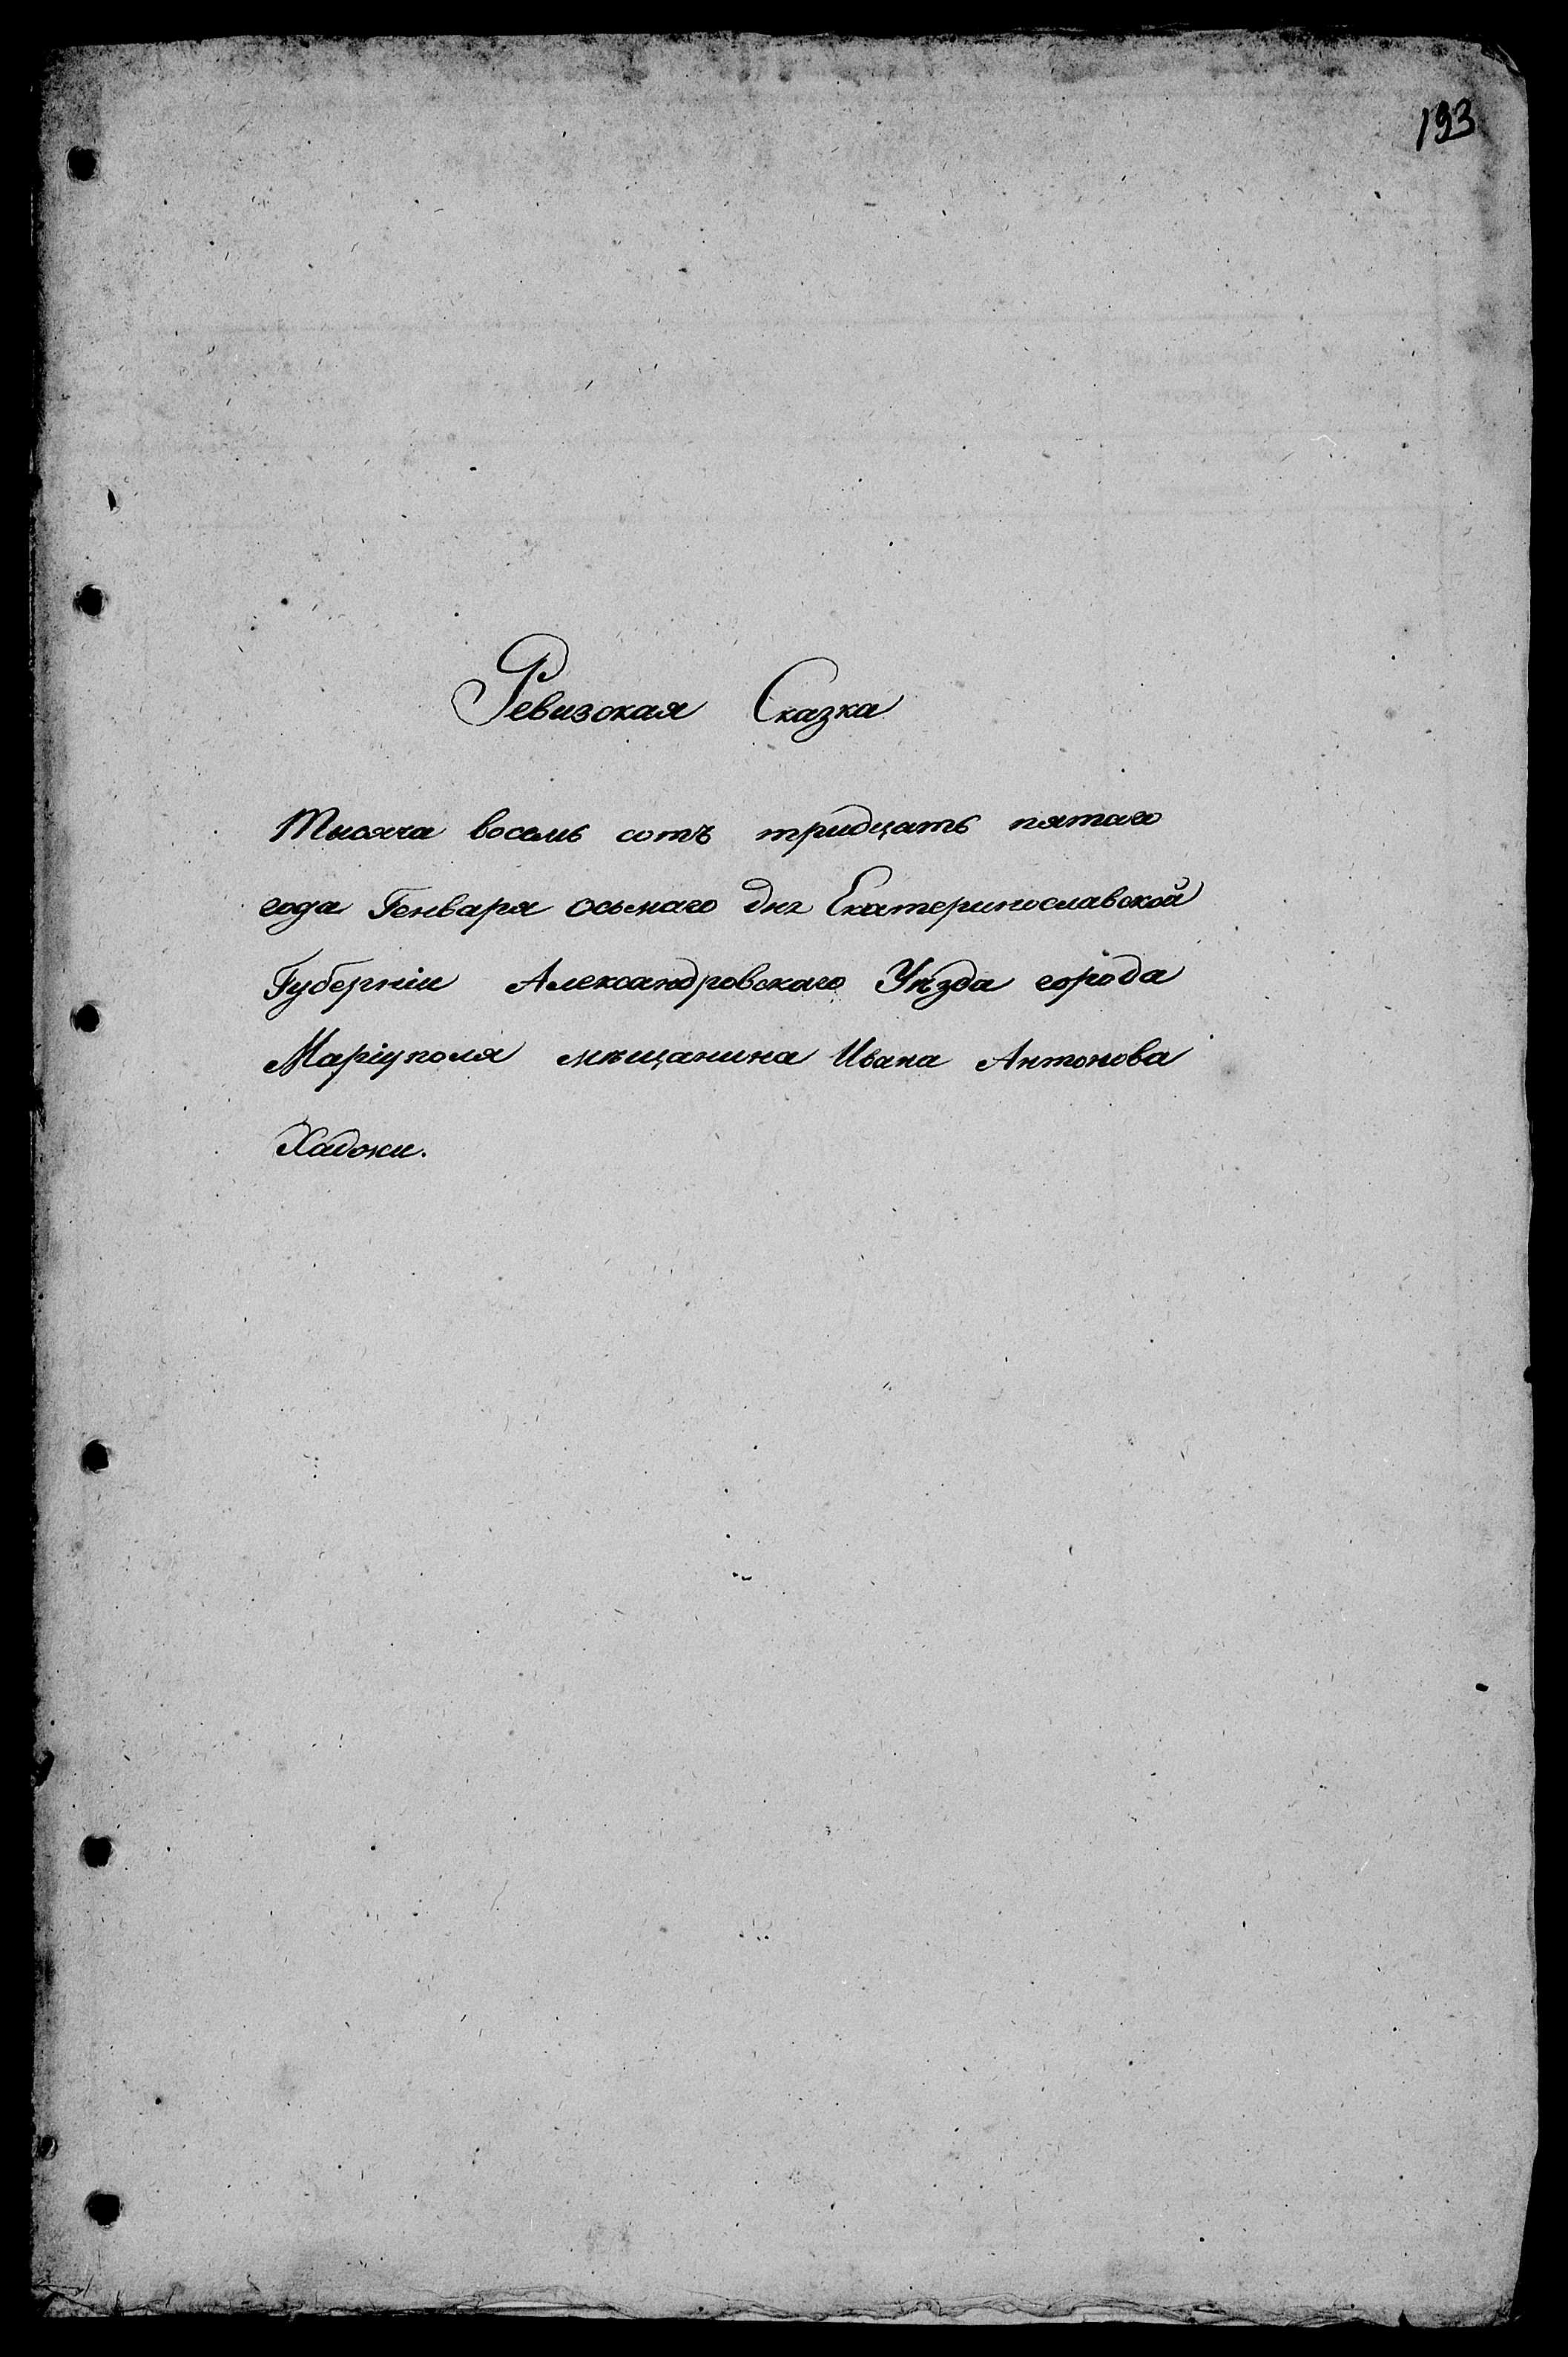 193
Ревизская Сказка
Тысяча восемь сотъ тридцать пятаго
года Генваря осьмаго дня Екатеринославской
Губерніи Александровскаго Уѣзда города
Маріуполя мѣщанина Ивана Антонова